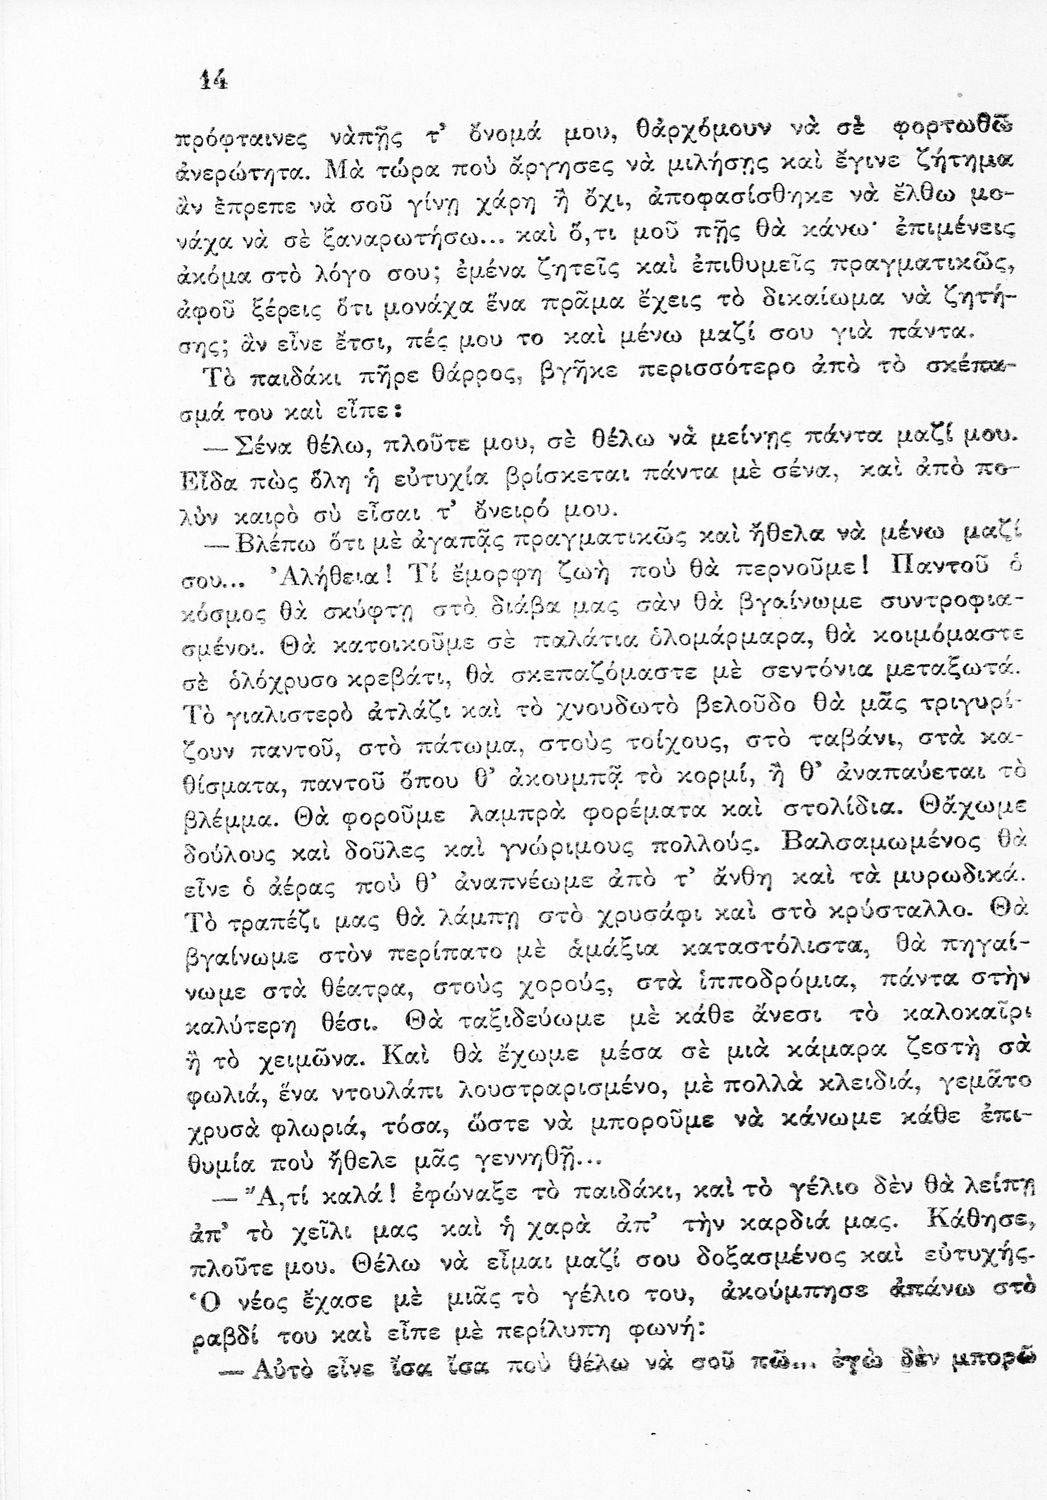 14
πρόφταινες νἀπῇς τ’ ὄνομά μου, θἀρχόμουν νὰ σὲ φορτωθῶ
ἀνερώτητα. Μὰ τώρα ποὺ ἄργησες νὰ μιλήσῃς καὶ ἔγινε ζήτημα
ἂν ἔπρεπε νὰ σοῦ γίνῃ χάρη ἢ ὄχι, ἀποφασίσθηκε νὰ ἔλθω μο-
νάχα νὰ σὲ ξαναρωτήσω... καὶ ὅ,τι μοῦ πῇς θὰ κάνω· ἐπιμένεις
ἀκόμα στὸ λόγο σου; ἐμένα ζητεῖς καὶ ἐπιθυμεῖς πραγματικῶς,
ἀφοῦ ξέρεις ὅτι μονάχα ἕνα πρᾶμα ἔχεις τὸ δικαίωμα νὰ ζητή-
σῃς; ἂν εἶνε ἔτσι, πές μου το καὶ μένω μαζί σου γιὰ πάντα.
Τὸ παιδάκι πῆρε θάρρος, βγῆκε περισσότερο ἀπὸ τὸ σκέπα-
σμά του καὶ εἶπε:
—Σένα θέλω, πλοῦτε μου, σὲ θέλω νὰ μείνῃς πάντα μαζί μου.
Εἶδα πὼς ὅλη ἡ εὐτυχία βρίσκεται πάντα μὲ σένα, καὶ ἀπὸ πο-
λὺν καιρὸ σὺ εἶσαι τ’ ὄνειρό μου.
—Βλέπω ὅτι μὲ ἀγαπᾷς πραγματικῶς καὶ ἤθελα νὰ μένω μαζί
σου... Ἀλήθεια! Τί ἔμορφη ζωὴ ποὺ θὰ περνοῦμε! Παντοῦ ὁ
κόσμος θὰ σκύφτῃ στὸ διάβα μας σὰν θὰ βγαίνωμε συντροφια-
σμένοι. Θὰ κατοικοῦμε σὲ παλάτια ὁλομάρμαρα, θὰ κοιμόμαστε
σὲ ὁλόχρυσο κρεβάτι, θὰ σκεπαζόμαστε μὲ σεντόνια μεταξωτά.
Τὸ γιαλιστερὸ ἀτλάζι καὶ τὸ χνουδωτὸ βελοῦδο θὰ μᾶς τριγυρί-
ζουν παντοῦ, στὸ πάτωμα, στοὺς τοίχους, στὸ ταβάνι, στὰ κα-
θίσματα, παντοῦ ὅπου θ’ ἀκουμπᾷ τὸ κορμί, ἢ θ’ ἀναπαύεται τὸ
βλέμμα. Θὰ φοροῦμε λαμπρὰ φορέματα καὶ στολίδια. Θἄχωμε
δούλους καὶ δοῦλες καὶ γνώριμους πολλούς. Βαλσαμωμένος θὰ
εἶνε ὁ ἀέρας ποὺ θ’ ἀναπνέωμε ἀπὸ τ’ ἄνθη καὶ τὰ μυρωδικά.
Τὸ τραπέζι μας θὰ λάμπῃ στὸ χρυσάφι καὶ στὸ κρύσταλλο. Θὰ
βγαίνωμε στὸν περίπατο μὲ ἁμάξια καταστόλιστα, θὰ πηγαί-
νωμε στὰ θέατρα, στοὺς χορούς, στὰ ἱπποδρόμια, πάντα στὴν
καλύτερη θέσι. Θὰ ταξιδεύωμε μὲ κάθε ἄνεσι τὸ καλοκαῖρι
ἢ τὸ χειμῶνα. Καὶ θὰ ἔχωμε μέσα σὲ μιὰ κάμαρα ζεστὴ σὰ
φωλιά, ἕνα ντουλάπι λουστραρισμένο, μὲ πολλὰ κλειδιά, γεμᾶτο
χρυσὰ φλωριά, τόσα, ὥστε νὰ μποροῦμε νὰ κάνωμε κάθε ἐπι-
θυμία ποὺ ἤθελε μᾶς γεννηθῇ...
—Ἄ,τί καλά! ἐφώναξε τὸ παιδάκι, καὶ τὸ γέλιο δὲν θὰ λείπῃ
ἀπ’ τὸ χεῖλι μας καὶ ἡ χαρὰ ἀπ’ τὴν καρδιά μας. Κάθησε,
πλοῦτε μου. Θέλω νὰ εἶμαι μαζί σου δοξασμένος καὶ εὐτυχής.
Ὁ νέος ἔχασε μὲ μιᾶς τὸ γέλιο του, ἀκούμπησε ἀπάνω στὸ
ραβδί του καὶ εἶπε μὲ περίλυπη φωνή:
—Αὐτὸ εἶνε ἴσα ἴσα ποὺ θέλω νὰ σοῦ πῶ... ἐγὼ δὲν μπορῶ